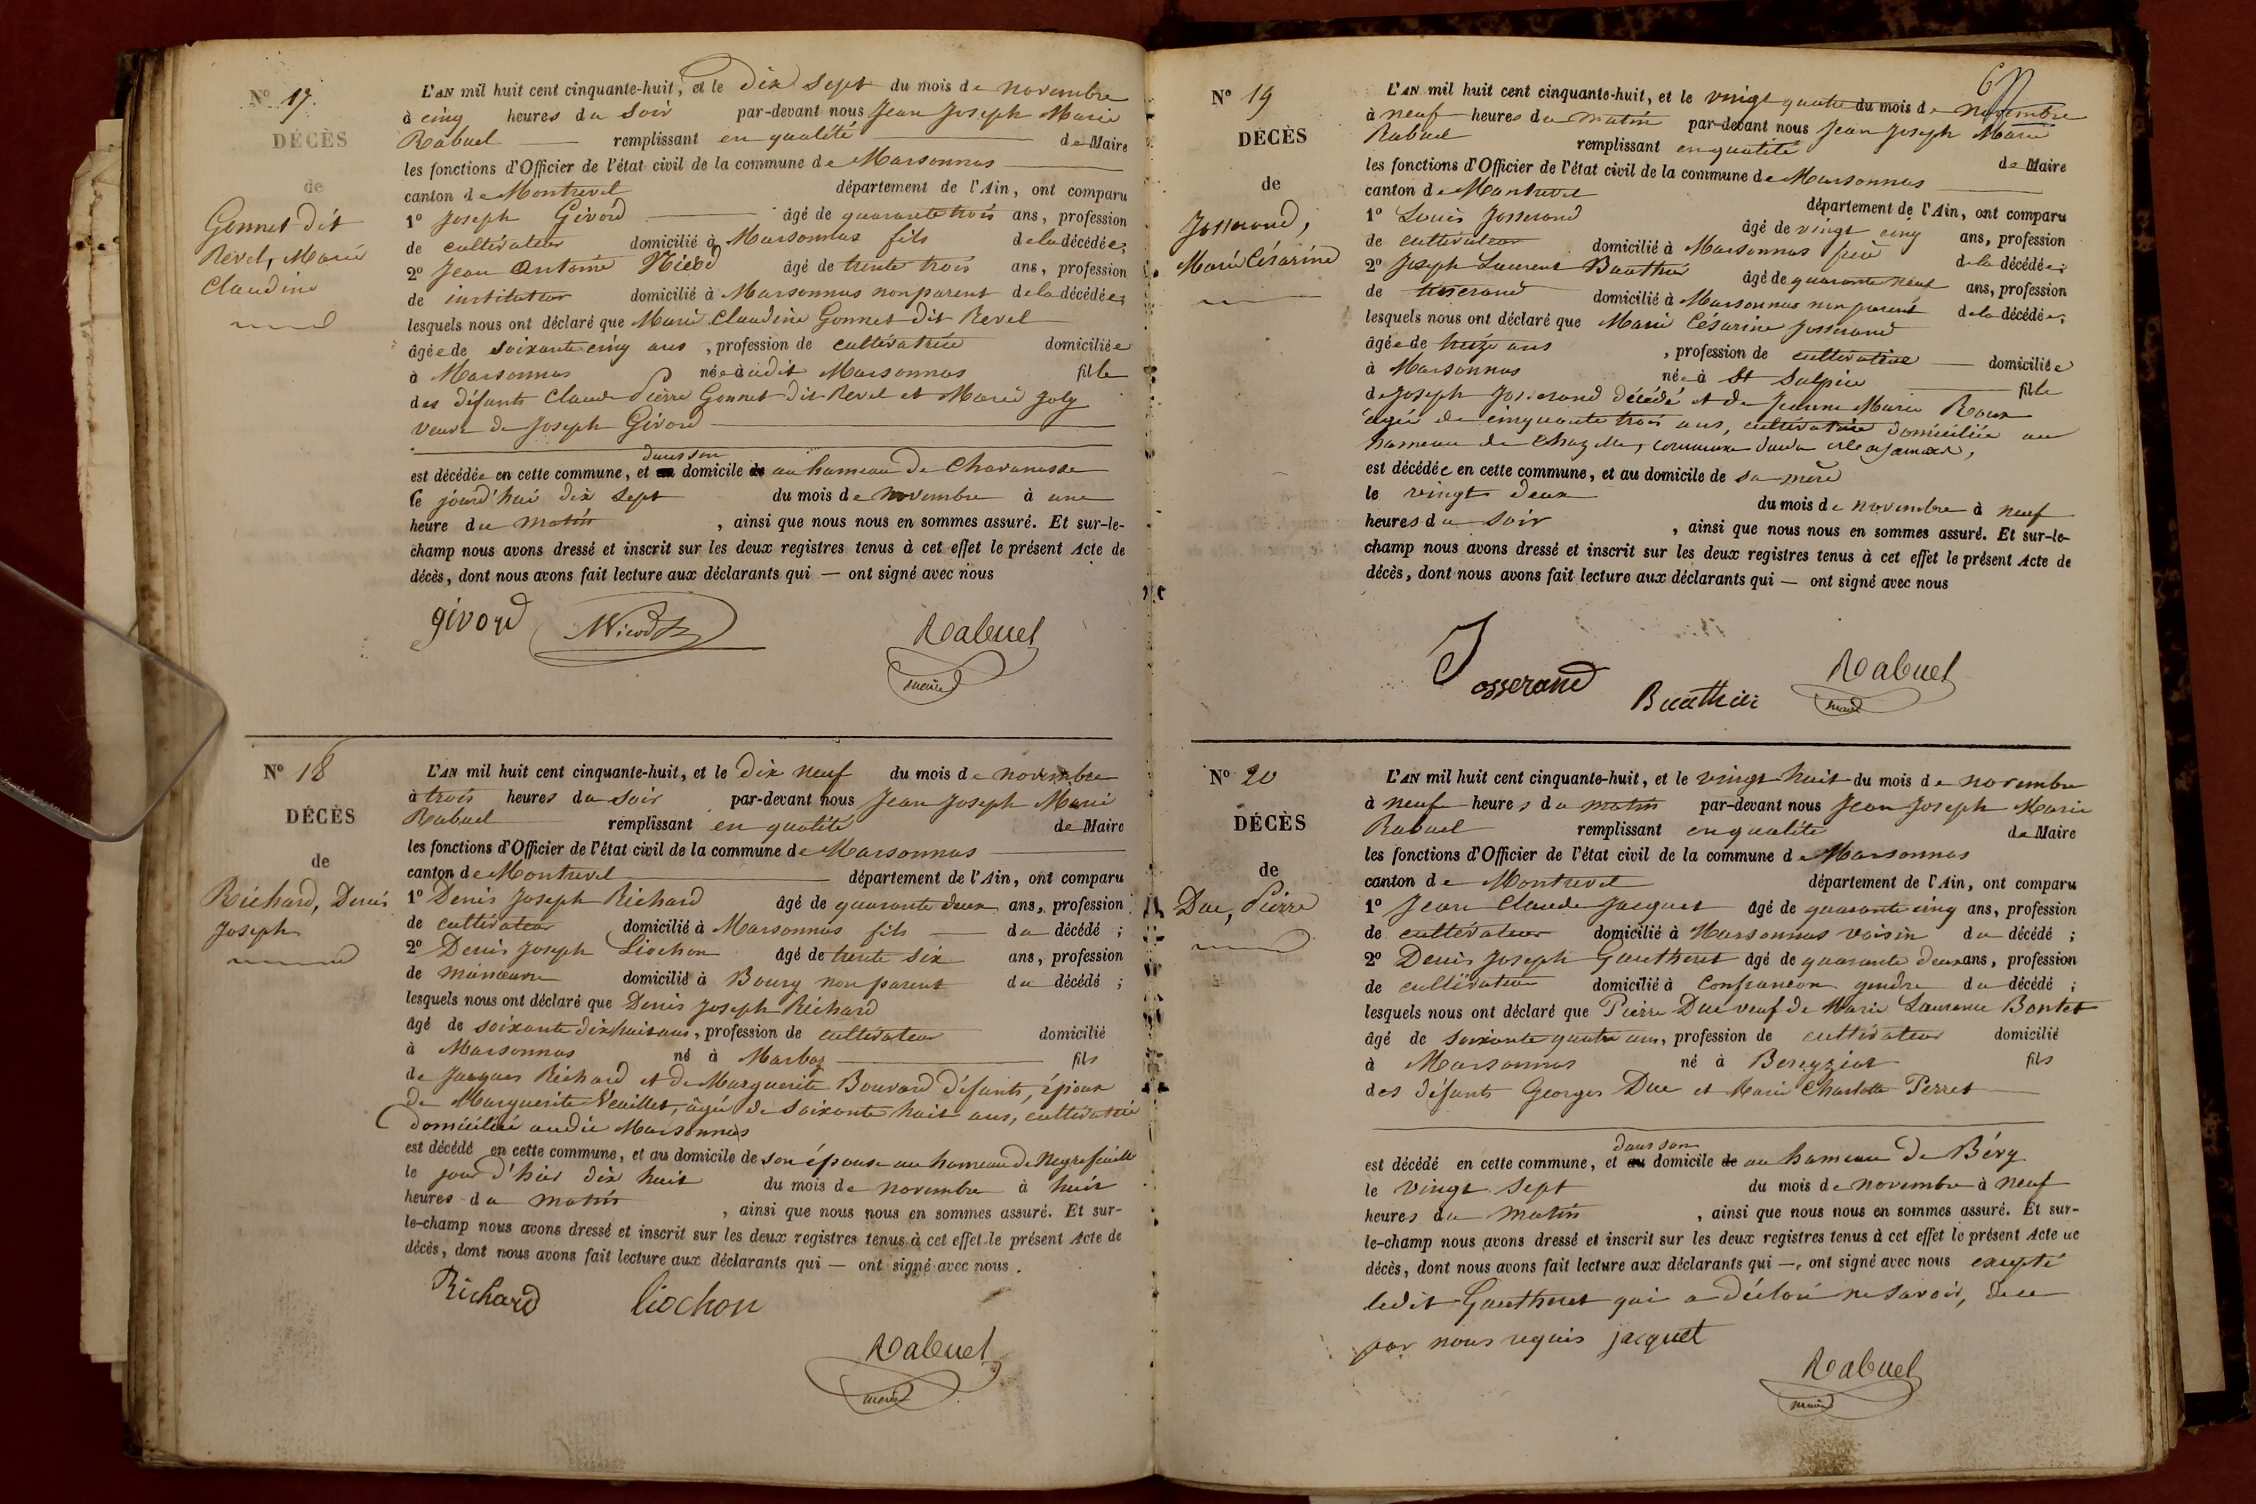 Nº 17.
DÉCÈS
de
Gonnet dit
Revel, Marie
Claudine
L'AN mil huit cent cinquante-huit, et le dix sept du mois de novembre
à cinq heures du soir par-devant nous Jean Joseph Marie
Rabuel remplissant en qualité de Maire
les fonctions d'Officier de l'état civil de la commune de Marsonnas
canton de Montrevel département de l'Ain, ont comparu
1º Joseph Givord âgé de quarante trois ans, profession
de cultivateur domicilié à Marsonnas fils de la décédée;
2º Jean Antoine Nicod âgé de trente trois ans, profession
de instituteur domicilié à Marsonnas non parent de la décédée;
lesquels nous ont déclaré que Marie Claudine Gonnet dit Revel
âgée de soixante cinq ans, profession de cultivatrice domiciliée
à Marsonnas née à udit Marsonnas fille
des défunts Claude Pierre Gonnet dit Revel et Marie Joly
veuve de Joseph Givord
dans son
est décédée en cette commune, et au domicile de au hameau de Chavanosse
ce jourd'hui dix sept du mois de novembre à une
heure du matin, ainsi que nous nous en sommes assuré. Et sur-le-
champ nous avons dressé et inscrit sur les deux registres tenus à cet effet le présent Acte de
décès, dont nous avons fait lecture aux déclarants qui — ont signé avec nous
givord Nicod Rabuel
maire
Nº 18
DÉCÈS
de
Richard, Denis
Joseph
L'AN mil huit cent cinquante-huit, et le dix neuf du mois de novembre
à trois heures du soir par-devant nous Jean Joseph Marie
Rabuel remplissant en qualité de Maire
les fonctions d'Officier de l'état civil de la commune de Marsonnas
canton de Montrevel département de l'Ain, ont comparu
1º Denis Joseph Richard âgé de quarante deux ans, profession
de cultivateur domicilié à Marsonnas fils du décédé;
2º Denis Joseph Liochon âgé de trente six ans, profession
de manœuvre domicilié à Bourg non parent du décédé;
lesquels nous ont déclaré que Denis Joseph Richard
âgé de soixante dix huit ans, profession de cultivateur domicilié
à Marsonnas né à Marboz fils
de Jacques Richard et de Marguerite Bouvard défunts, époux
de Marguerite Veuillet, âgée de soixante huit ans, cultivatrice
domiciliée audit Marsonnas
est décédé en cette commune, et au domicile de son épouse au hameau de Negrefeuille
le jour d'hier dix huit du mois de novembre à huit
heures du matin, ainsi que nous nous en sommes assuré. Et sur-
le-champ nous avons dressé et inscrit sur les deux registres tenus à cet effet le présent Acte de
décès, dont nous avons fait lecture aux déclarants qui — ont signé avec nous.
Richard Liochon
Rabuel
maire
Nº 19
DÉCÈS
de
Josserand,
Marie Césarine
L'AN mil huit cent cinquante-huit, et le vingt quatre du mois de novembre
à neuf heures du matin par-devant nous Jean Joseph Marie
Rabuel remplissant en qualité de Maire
les fonctions d'Officier de l'état civil de la commune de Marsonnas
canton de Montrevel département de l'Ain, ont comparu
1º Louis Josserand âgé de vingt cinq ans, profession
de cultivateur domicilié à Marsonnas frère de la décédée;
2º Joseph Laurent Buathier âgé de quarante neuf ans, profession
de tisserand domicilié à Marsonnas non parent de la décédée;
lesquels nous ont déclaré que Marie Césarine Josserand
âgée de treize ans, profession de cultivatrice domiciliée
à Marsonnas née à St Sulpice fille
de Joseph Josserand décédé et de Jeanne Marie Roux
âgée de cinquante trois ans, cultivatrice domiciliée au
hameau de Chazelle, commune
est décédée en cette commune, et au domicile de sa mère
le vingt deux du mois de novembre à neuf
heures du soir, ainsi que nous nous en sommes assuré. Et sur-le-
champ nous avons dressé et inscrit sur les deux registres tenus à cet effet le présent Acte de
décès, dont nous avons fait lecture aux déclarants qui — ont signé avec nous
Josserand Buathier Rabuel
maire
Nº 20
DÉCÈS
de
Duc, Pierre
L'AN mil huit cent cinquante-huit, et le vingt huit du mois de novembre
à neuf heures du matin par-devant nous Jean Joseph Marie
Rabuel remplissant en qualité de Maire
les fonctions d'Officier de l'état civil de la commune de Marsonnas
canton de Montrevel département de l'Ain, ont comparu
1º Jean Claude Jacquet âgé de quarante cinq ans, profession
de cultivateur domicilié à Marsonnas voisin du décédé;
2º Denis Joseph Gautheret âgé de quarante deux ans, profession
de cultivateur domicilié à Confrancon gendre du décédé;
lesquels nous ont déclaré que Pierre Duc veuf de Marie Laurence Bontet
âgé de soixante quatre ans, profession de cultivateur domicilié
à Marsonnas né à Bereyziat fils
des défunts Georges Duc et Marie Charlotte Perret
dans son
est décédé en cette commune, et au domicile de au hameau de Béry
le vingt sept du mois de novembre à neuf
heures du matin, ainsi que nous nous en sommes assuré. Et sur-
le-champ nous avons dressé et inscrit sur les deux registres tenus à cet effet le présent Acte de
décès, dont nous avons fait lecture aux déclarants qui —, ont signé avec nous excepté
ledit Gautheret qui a déclaré ne savoir, de ce
par nous requis jacquet
Rabuel
maire